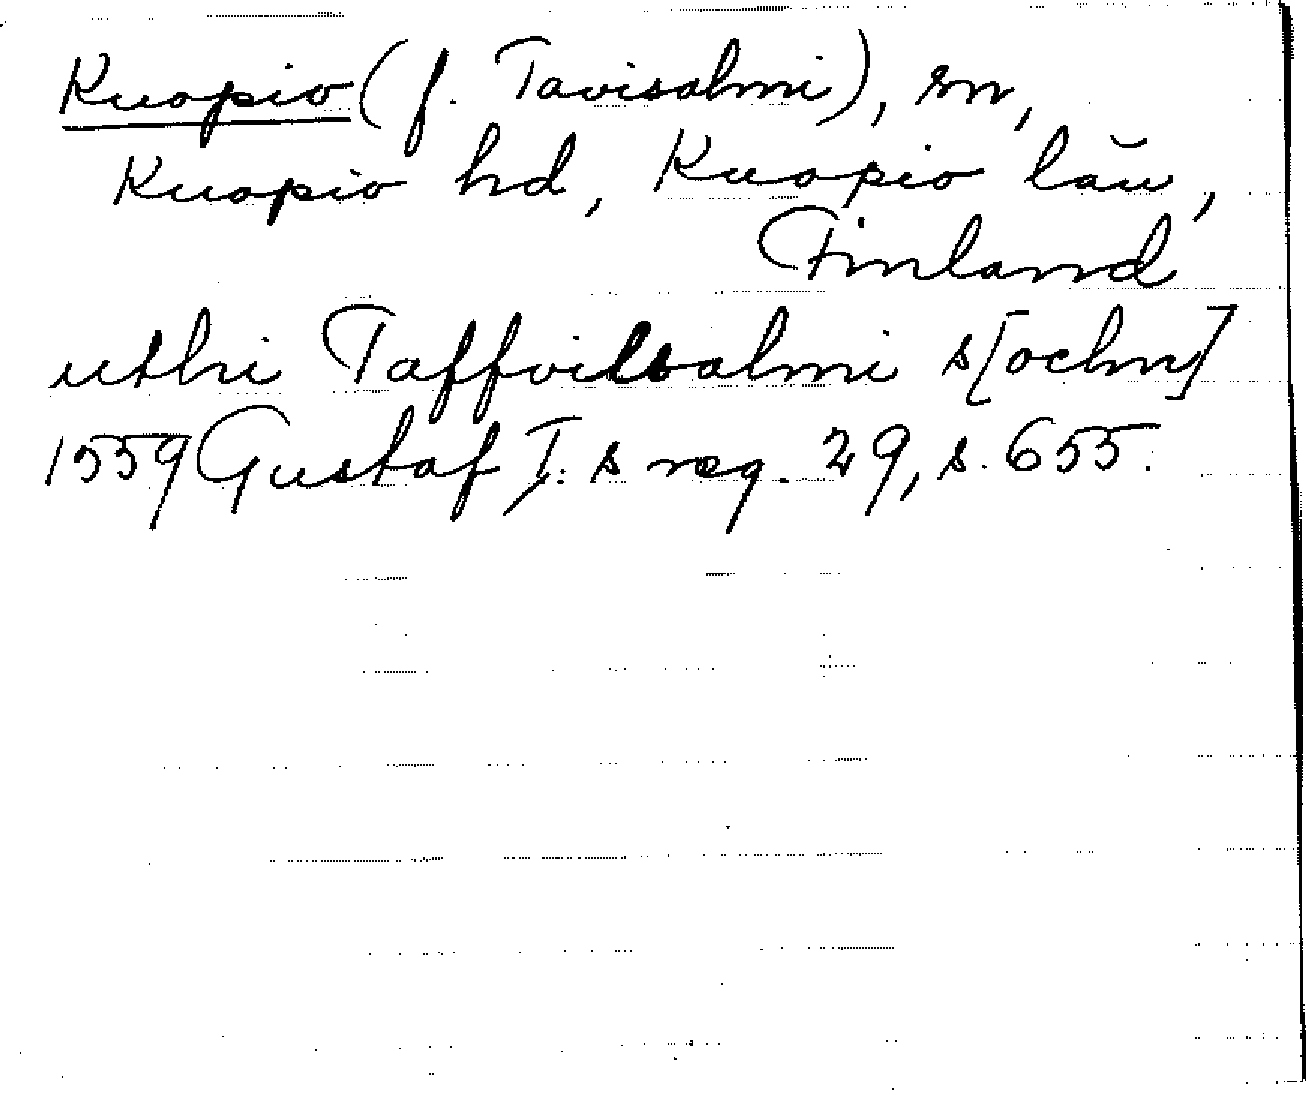 Kuopio (f. Tavisalmi), sn,
Kuopio hd, Kuopio län,
Finland
uthi Taffvilsalmi s[ochn]
1559 Gustaf I:s reg. 29, s. 655.